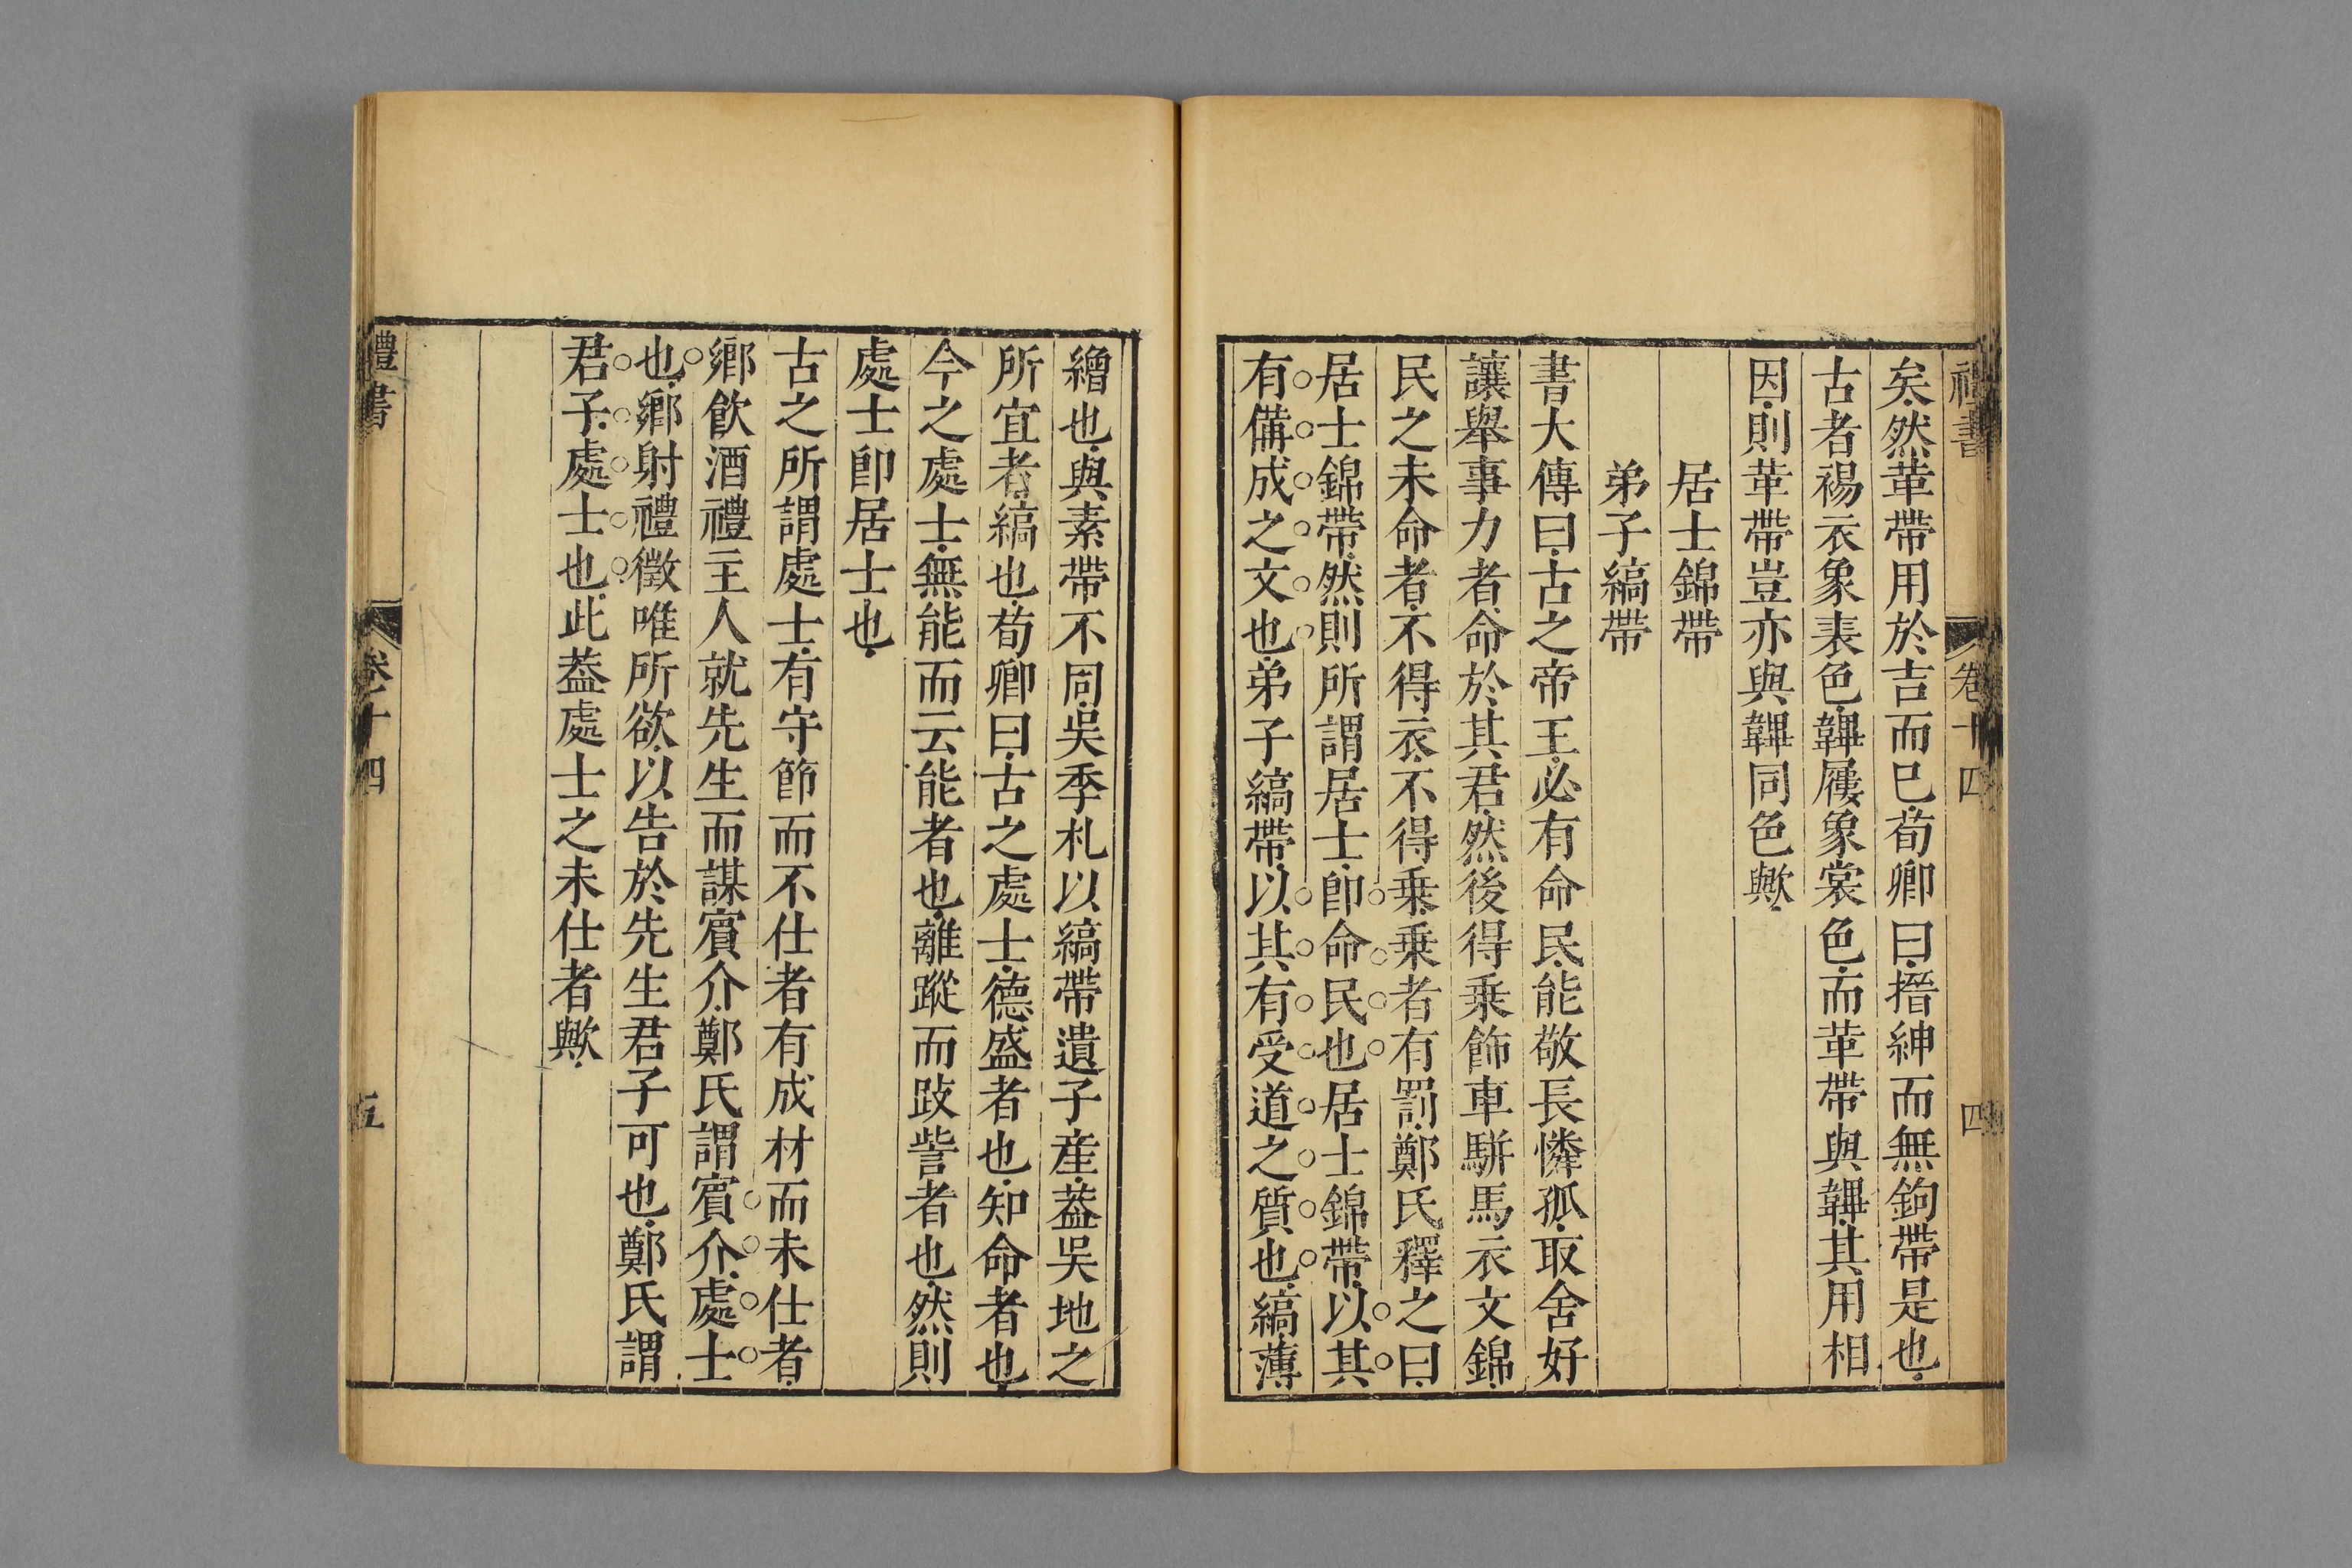 禮書 卷十四 四
矣然革帶用於吉而已荀卿曰搢紳而無鉤帶是也
古者裼衣象裘色韠屨象裳色而革帶與韠其用相
因則革帶豈亦與韠同色歟
居士錦帶
弟子縞帶
書大傳曰古之帝王必有命民能敬長憐孤取舍好
讓舉事力者命於其君然後得乗飾車駢馬衣文錦
民之未命者不得衣不得乗乗者有罰鄭氏釋之曰
居士錦帶然則所謂居士卽命民也居士錦帶以其
有備成之文也弟子縞帶以其有受道之質也縞薄
繒也與素帶不同吳季札以縞帶遺子産葢吳地之
所宜者縞也荀卿曰古之處士德盛者也知命者也
今之處士無能而云能者也離蹤而跂訾者也然則
處士卽居士也
古之所謂處士有守節而不仕者有成材而未仕者
鄉飲酒禮主人就先生而謀賔介鄭氏謂賔介處士
也鄉射禮徵唯所欲以告於先生君子可也鄭氏謂
君子處士也此葢處士之未仕者歟
禮書 卷十四 五